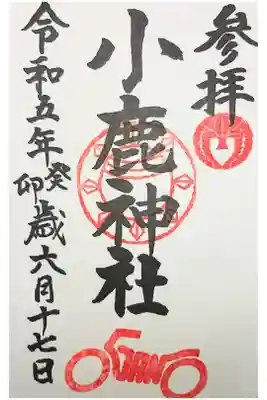 参拝
小鹿神社
令和五年癸卯歳六月十七日